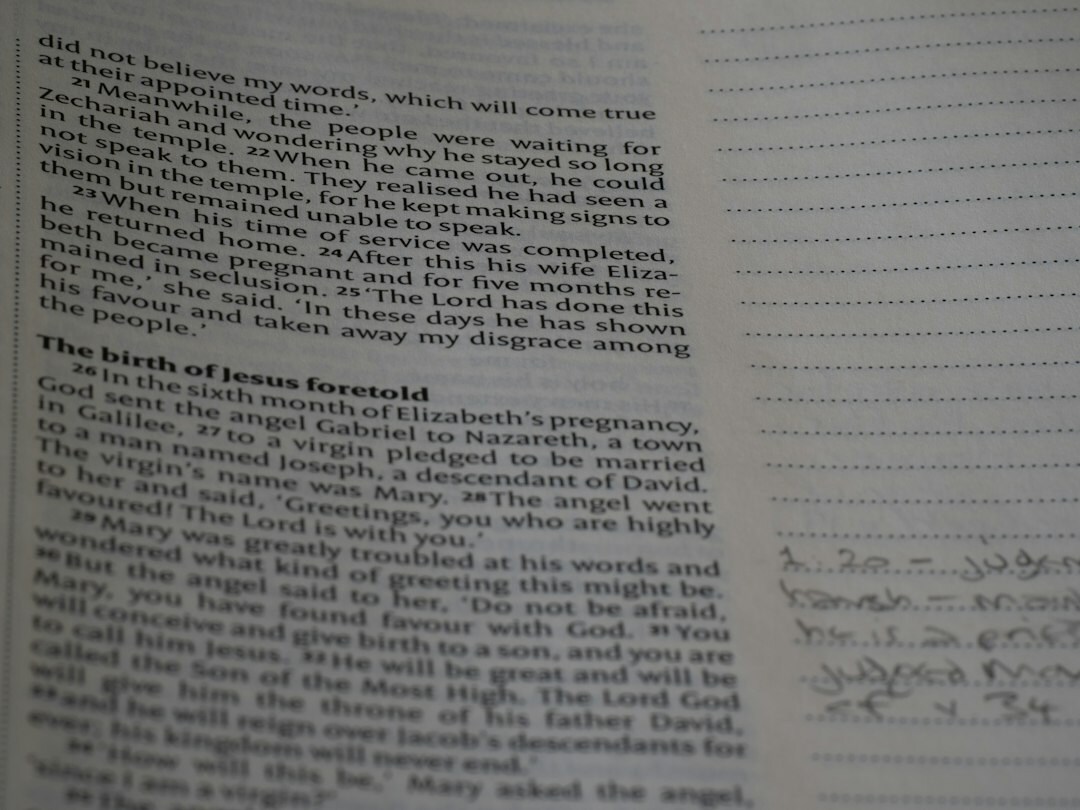 did not believe my words, which will come true
at their appointed time.’
21 Meanwhile, the people were waiting for
Zechariah and wondering why he stayed so long
in the temple. 22 When he came out, he could
not speak to them. They realised he had seen a
vision in the temple, for he kept making signs to
them but remained unable to speak.
23 When his time of service was completed,
he returned home. 24 After this his wife Eliza-
beth became pregnant and for five months re-
mained in seclusion. 25 ‘The Lord has done this
for me,’ she said. ‘In these days he has shown
his favour and taken away my disgrace among
the people.’
The birth of Jesus foretold
26 In the sixth month of Elizabeth’s pregnancy,
God sent the angel Gabriel to Nazareth, a town
in Galilee, 27 to a virgin pledged to be married
to a man named Joseph, a descendant of David.
The virgin’s name was Mary. 28 The angel went
to her and said, ‘Greetings, you who are highly
favoured! The Lord is with you.’
29 Mary was greatly troubled at his words and
wondered what kind of greeting this might be.
30 But the angel said to her, ‘Do not be afraid,
Mary, you have found favour with God. 31 You
will conceive and give birth to a son, and you are
to call him Jesus. 32 He will be great and will be
called the Son of the Most High. The Lord God
will give him the throne of his father David,
33 and he will reign over Jacob’s descendants for
ever; his kingdom will never end.’
34 ‘How will this be,’ Mary asked the angel,
‘since I am a virgin?’
1:20 –
harsh –
he is a
cf v 34